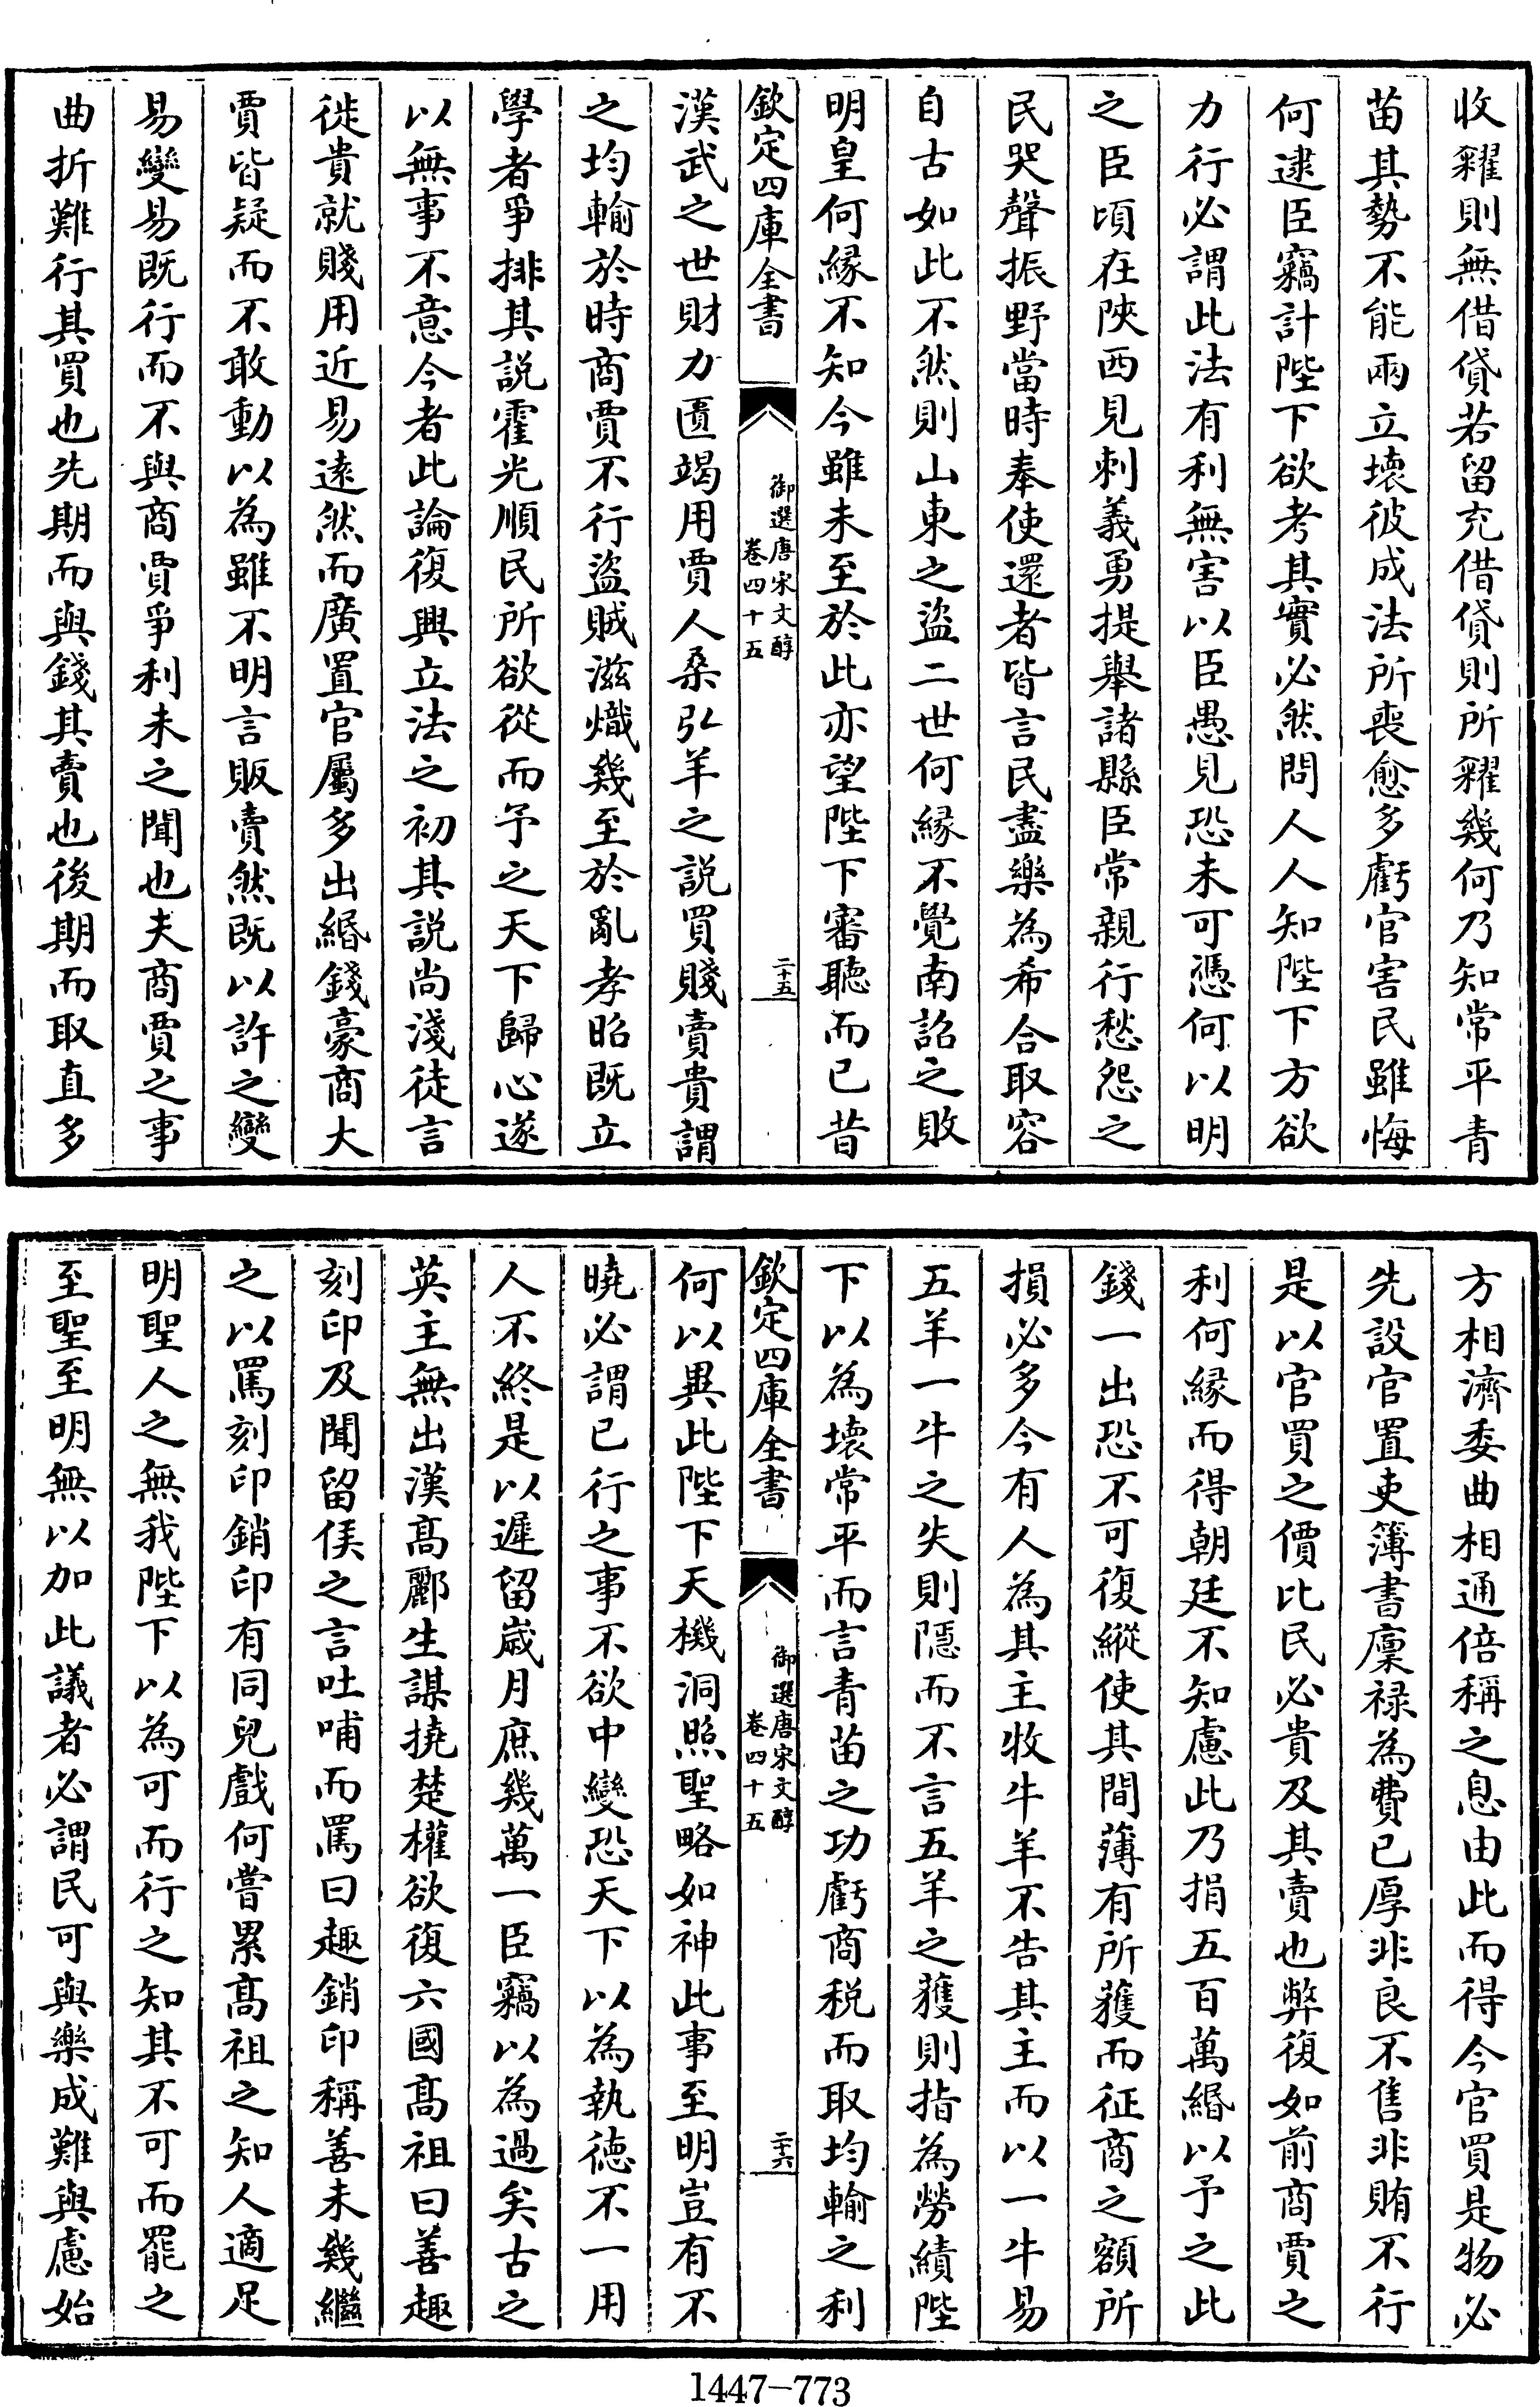 收糴則無借貸若留充借貸則所糴幾何乃知常平青
苗其勢不能兩立壊彼成法所喪愈多虧官害民雖悔
何逮臣竊計陛下欲考其實必然問人人知陛下方欲
力行必謂此法有利無害以臣愚見恐未可憑何以明
之臣頃在陜西見刺義勇提舉諸縣臣常親行愁怨之
民哭聲振野當時奉使還者皆言民盡樂為希合取容
自古如此不然則山東之盜二世何縁不覺南詔之敗
明皇何縁不知今雖未至於此亦望陛下審聽而已昔
欽定四庫全書
御選唐宋文醇
卷四十五
二十五
漢武之世財力匱竭用賈人桑弘羊之説買賤賣貴謂
之均輸於時商賈不行盜賊滋熾幾至於亂孝昭既立
學者爭排其説霍光順民所欲從而予之天下歸心遂
以無事不意今者此論復興立法之初其説尚淺徒言
徙貴就賤用近易遠然而廣置官屬多出緡錢豪商大
賈皆疑而不敢動以為雖不明言販賣然既以許之變
易變易既行而不與商賈爭利未之聞也夫商賈之事
曲折難行其買也先期而與錢其賣也後期而取直多
方相濟委曲相通倍稱之息由此而得今官買是物必
先設官置吏簿書廩禄為費已厚非良不售非賄不行
是以官買之價比民必貴及其賣也弊復如前商賈之
利何縁而得朝廷不知慮此乃捐五百萬緡以予之此
錢一出恐不可復縱使其間薄有所獲而征商之額所
損必多今有人為其主牧牛羊不告其主而以一牛易
五羊一牛之失則隱而不言五羊之獲則指為勞績陛
下以為壊常平而言青苗之功虧商税而取均輸之利
欽定四庫全書
御選唐宋文醇
卷四十五
二十六
何以異此陛下天機洞照聖略如神此事至明豈有不
曉必謂已行之事不欲中變恐天下以為執德不一用
人不終是以遲留歲月庶幾萬一臣竊以為過矣古之
英主無出漢髙酈生謀撓楚權欲復六國髙祖曰善趣
刻印及聞留侯之言吐哺而罵曰趣銷印稱善未幾繼
之以罵刻印銷印有同兒戲何嘗累髙祖之知人適足
明聖人之無我陛下以為可而行之知其不可而罷之
至聖至明無以加此議者必謂民可與樂成難與慮始
1447-773